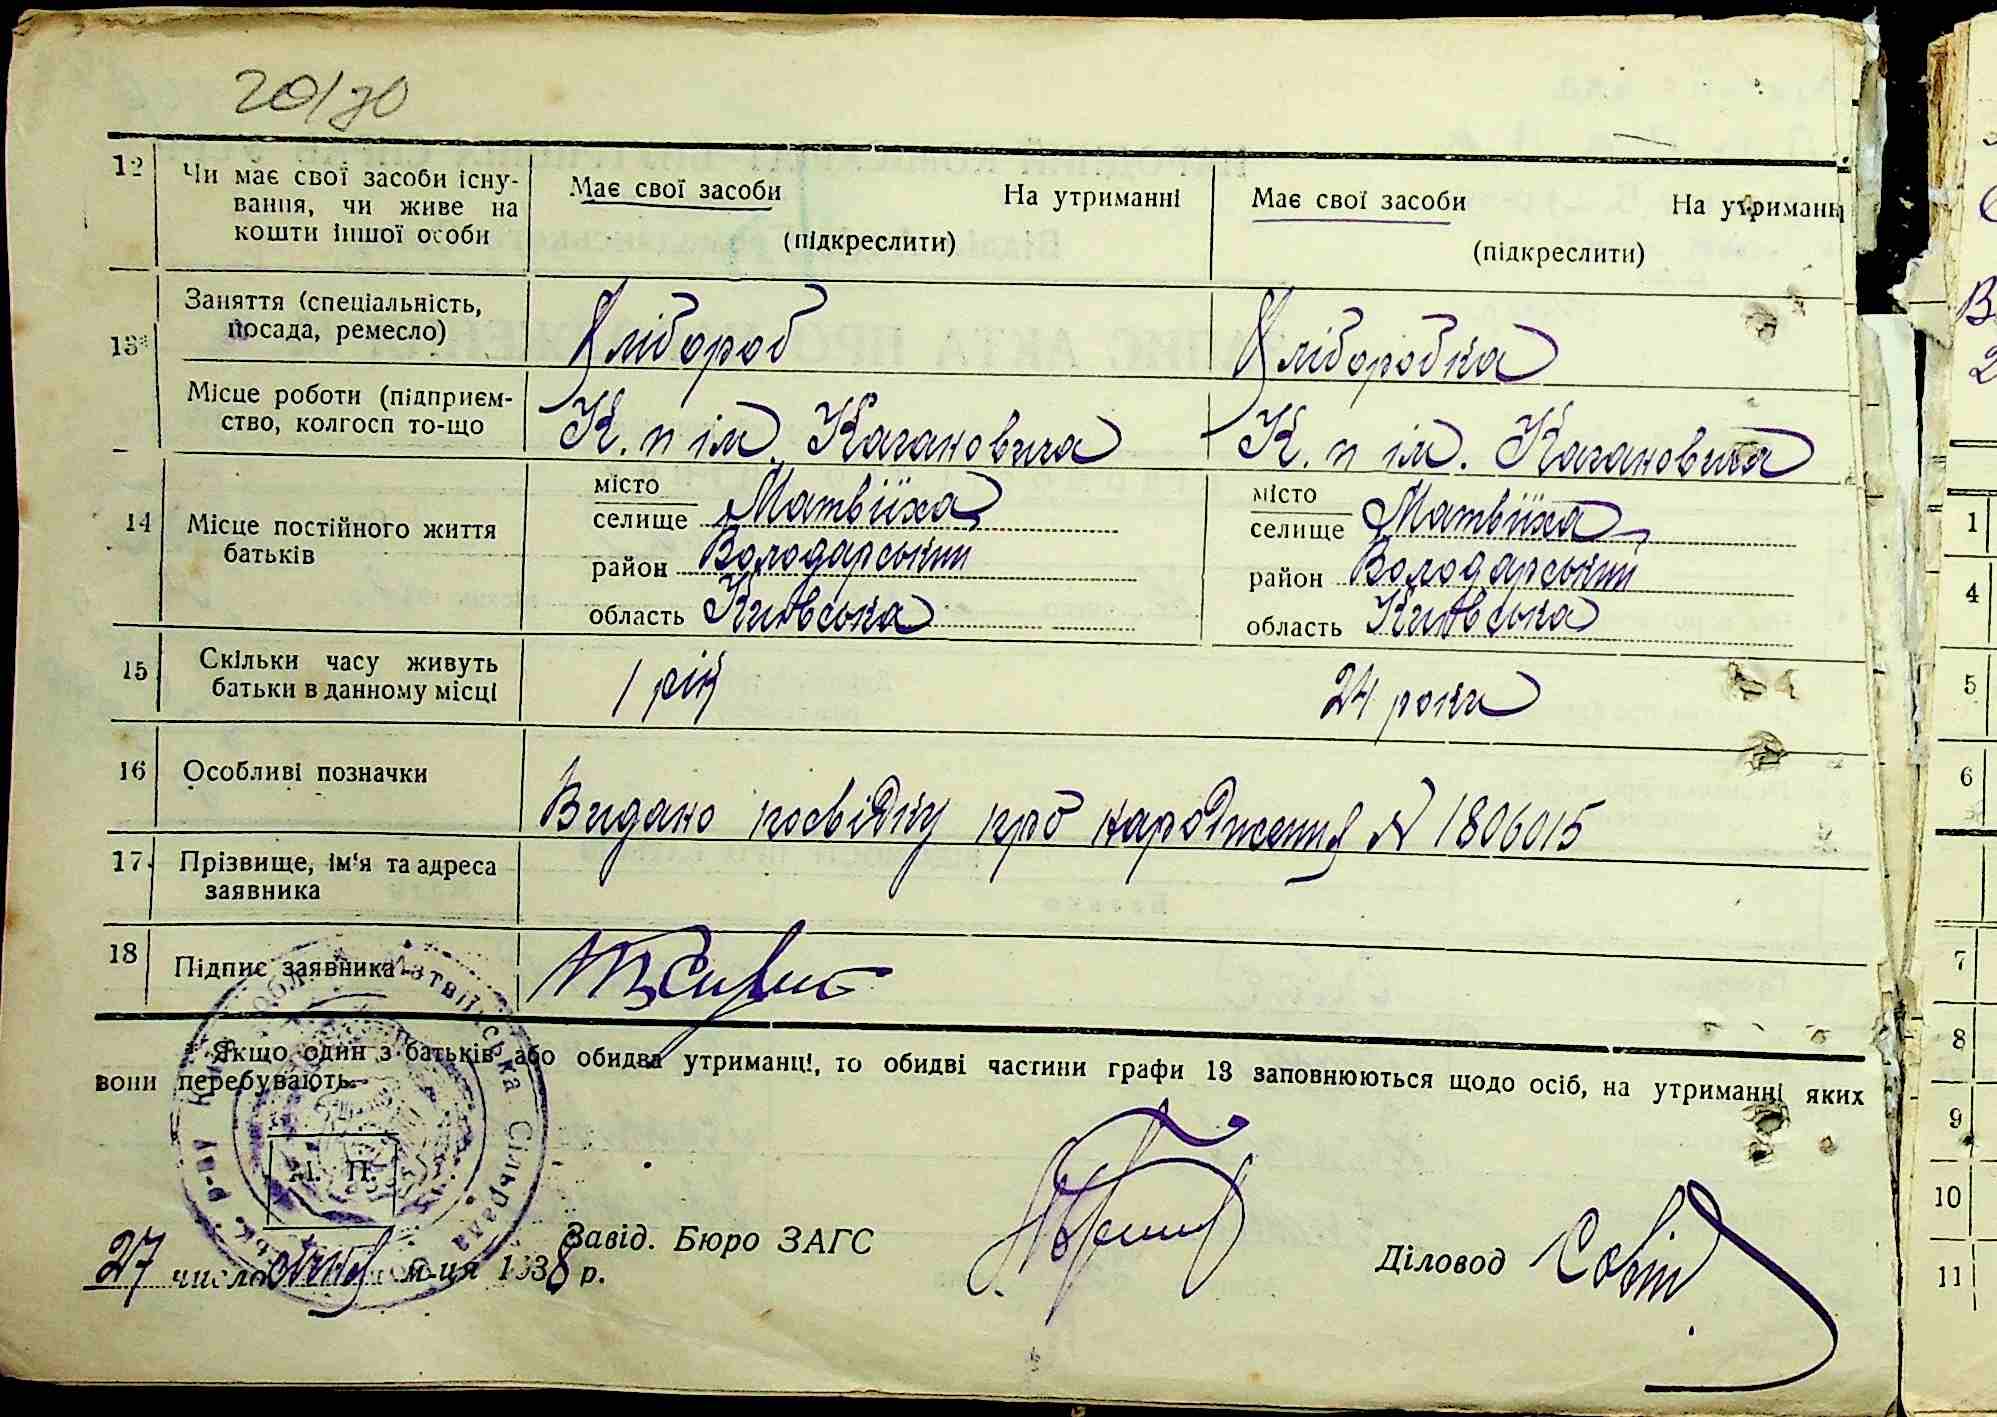 20/70
12 Чи має свої засоби існу-
вання, чи живе на
кошти іншої особи
Має свої засоби На утриманні
(підкреслити)
Має свої засоби На утриманні
(підкреслити)
13* Заняття (спеціальність,
посада, ремесло)
Хлібороб
Хліборобка
Місце роботи (підприєм-
ство, колгосп то-що
К. п ім. Кагановича
К. п ім. Кагановича
14 Місце постійного життя
батьків
місто
селище Матвіїха
район Володарський
область Київська
місто
селище Матвіїха
район Володарський
область Київська
15 Скільки часу живуть
батьки в данному місці
1 рік
24 роки
16 Особливі позначки
Видано посвідку про народження N 1806015
17. Прізвище, ім'я та адреса
заявника
18 Підпис заявника
* Якщо один з батьків або обидва утриманці, то обидві частини графи 13 заповнюються щодо осіб, на утриманні яких
вони перебувають.
М. П.
Матвіїсська Сільрада
27 число м-ця 1938 р.
Завід. Бюро ЗАГС
Діловод
1
4
5
6
7
8
9
10
11